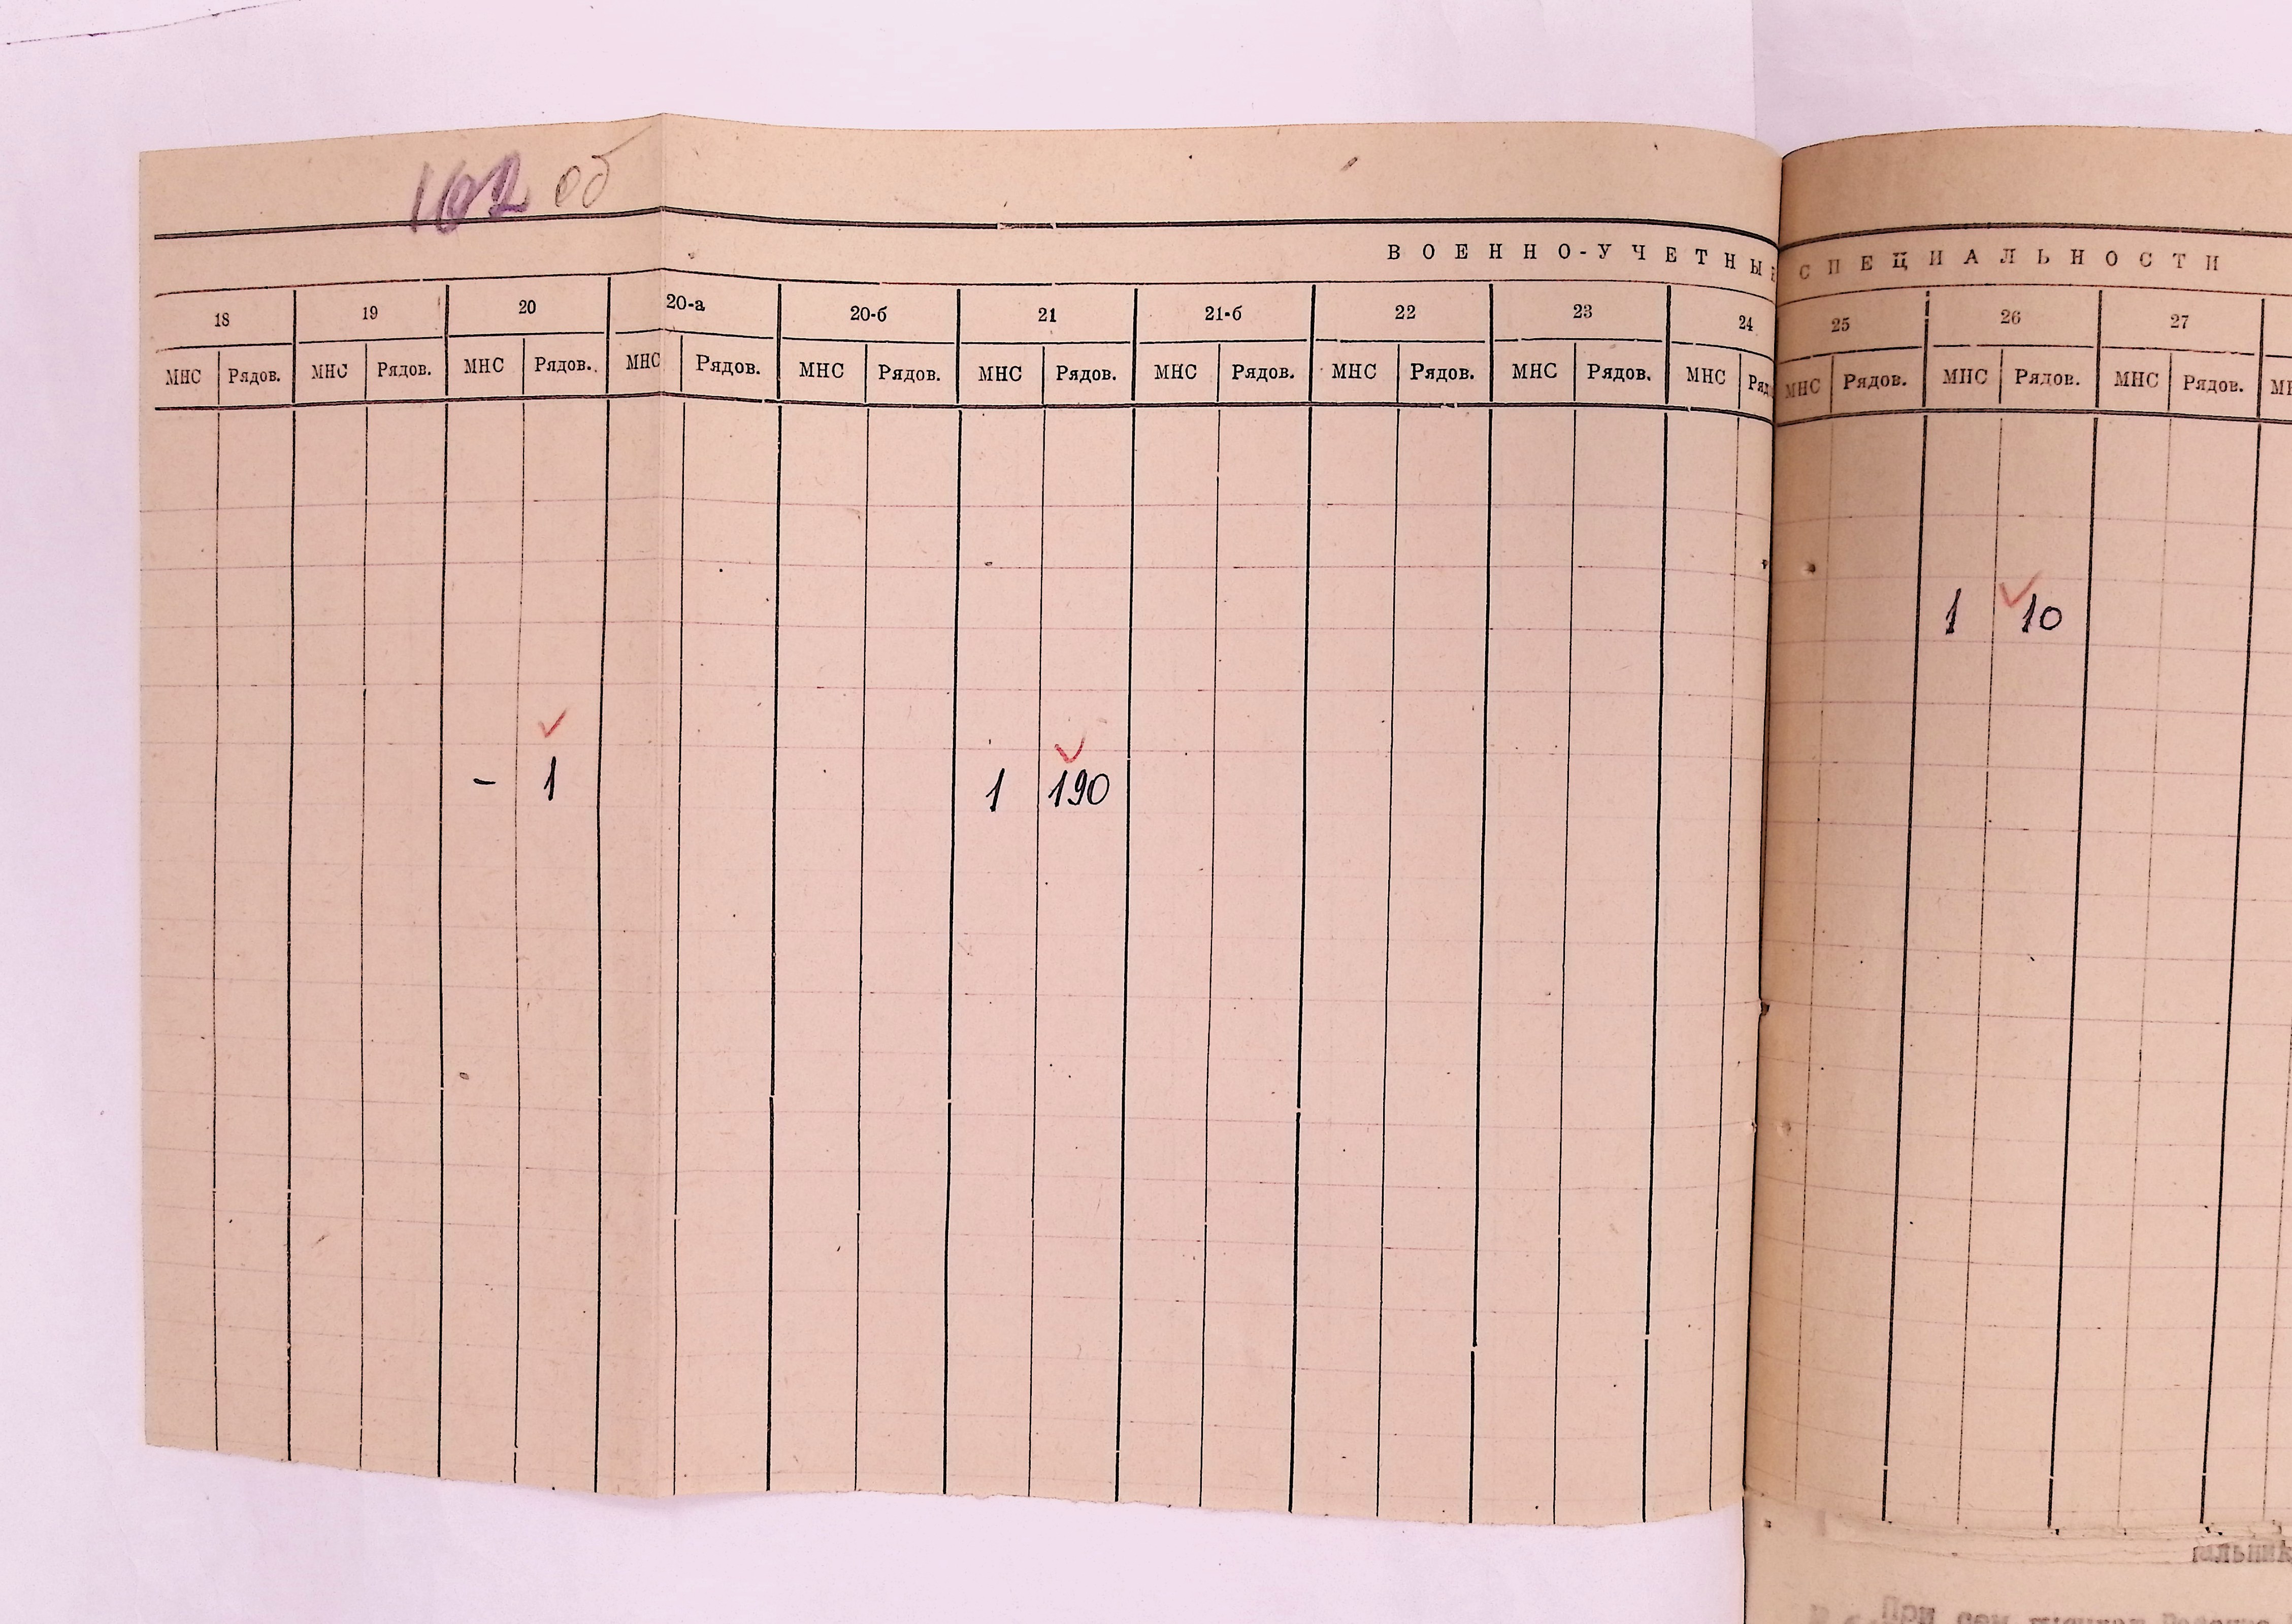 об
ВОЕННО-УЧЕТНЫЕ СПЕЦИАЛЬНОСТИ
18 19 20 20-а 20-б 21 21-б 22 23 24 25 26 27
МНС Рядов. МНС Рядов. МНС Рядов. МНС Рядов. МНС Рядов. МНС Рядов. МНС Рядов. МНС Рядов. МНС Рядов. МНС Ряд МНС Рядов. МНС Рядов. МНС Рядов.
1 10
- 1 1 190
При сем